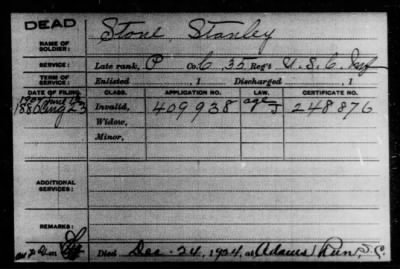 DEAD
NAME OF SOLDIER: Stone, Stanley
SERVICE: Late rank, P Co. C, 35 Reg't U.S.C. Inf
TERM OF SERVICE: Enlisted , 1 Discharged , 1
DATE OF FILING. CLASS. APPLICATION NO. LAW. CERTIFICATE NO.
1880 Aug 23 Invalid, 409938 age 248876
Widow,
Minor,
ADDITIONAL SERVICES:
REMARKS:
Died Dec. 24, 1924, at Adams Run, S.C.